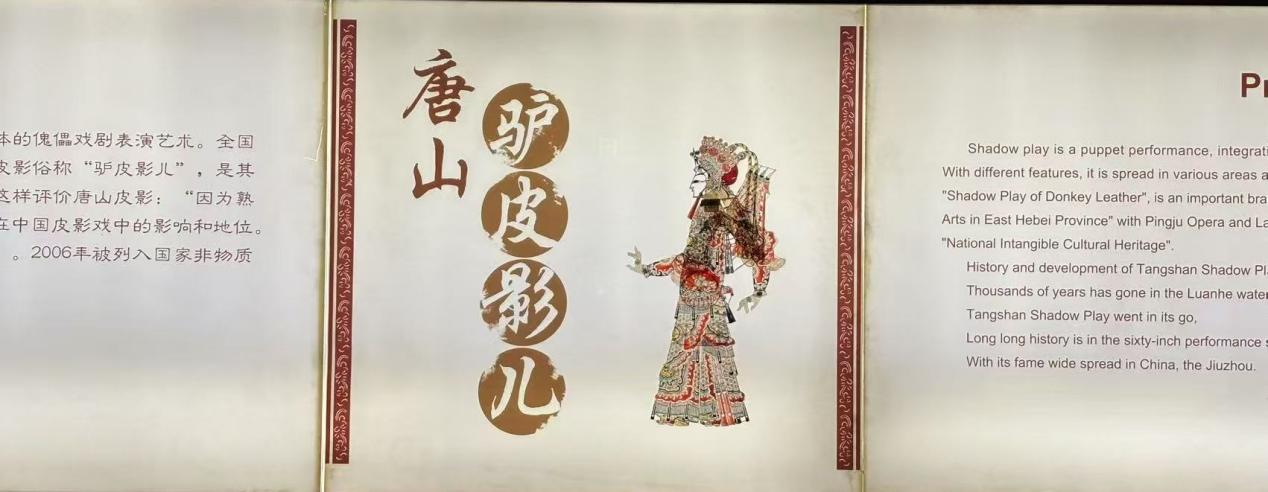 体的傀儡戏剧表演艺术。全国
皮影俗称“驴皮影儿”，是其
这样评价唐山皮影：“因为熟
在中国皮影戏中的影响和地位。
。2006年被列入国家非物质
唐山
驴皮影儿
Shadow play is a puppet performance, integrati
With different features, it is spread in various areas a
"Shadow Play of Donkey Leather", is an important bra
Arts in East Hebei Province" with Pingju Opera and La
"National Intangible Cultural Heritage".
History and development of Tangshan Shadow Pl
Thousands of years has gone in the Luanhe water
Tangshan Shadow Play went in its go,
Long long history is in the sixty-inch performance s
With its fame wide spread in China, the Jiuzhou.